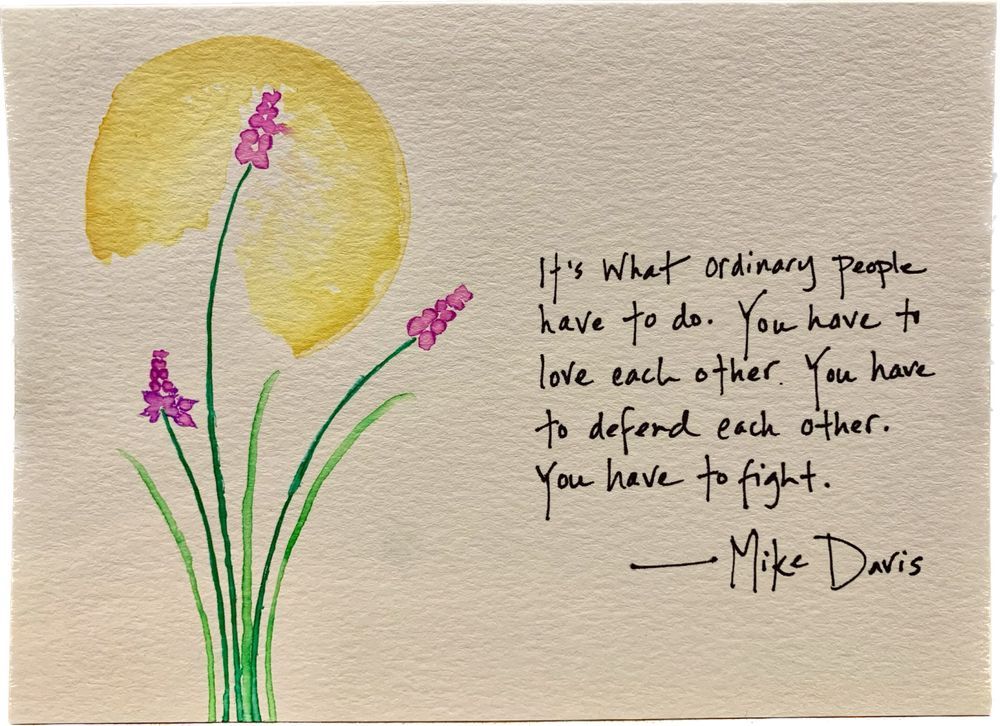 It's what ordinary people
have to do. You have to
love each other. You have
to defend each other.
You have to fight.
— Mike Davis